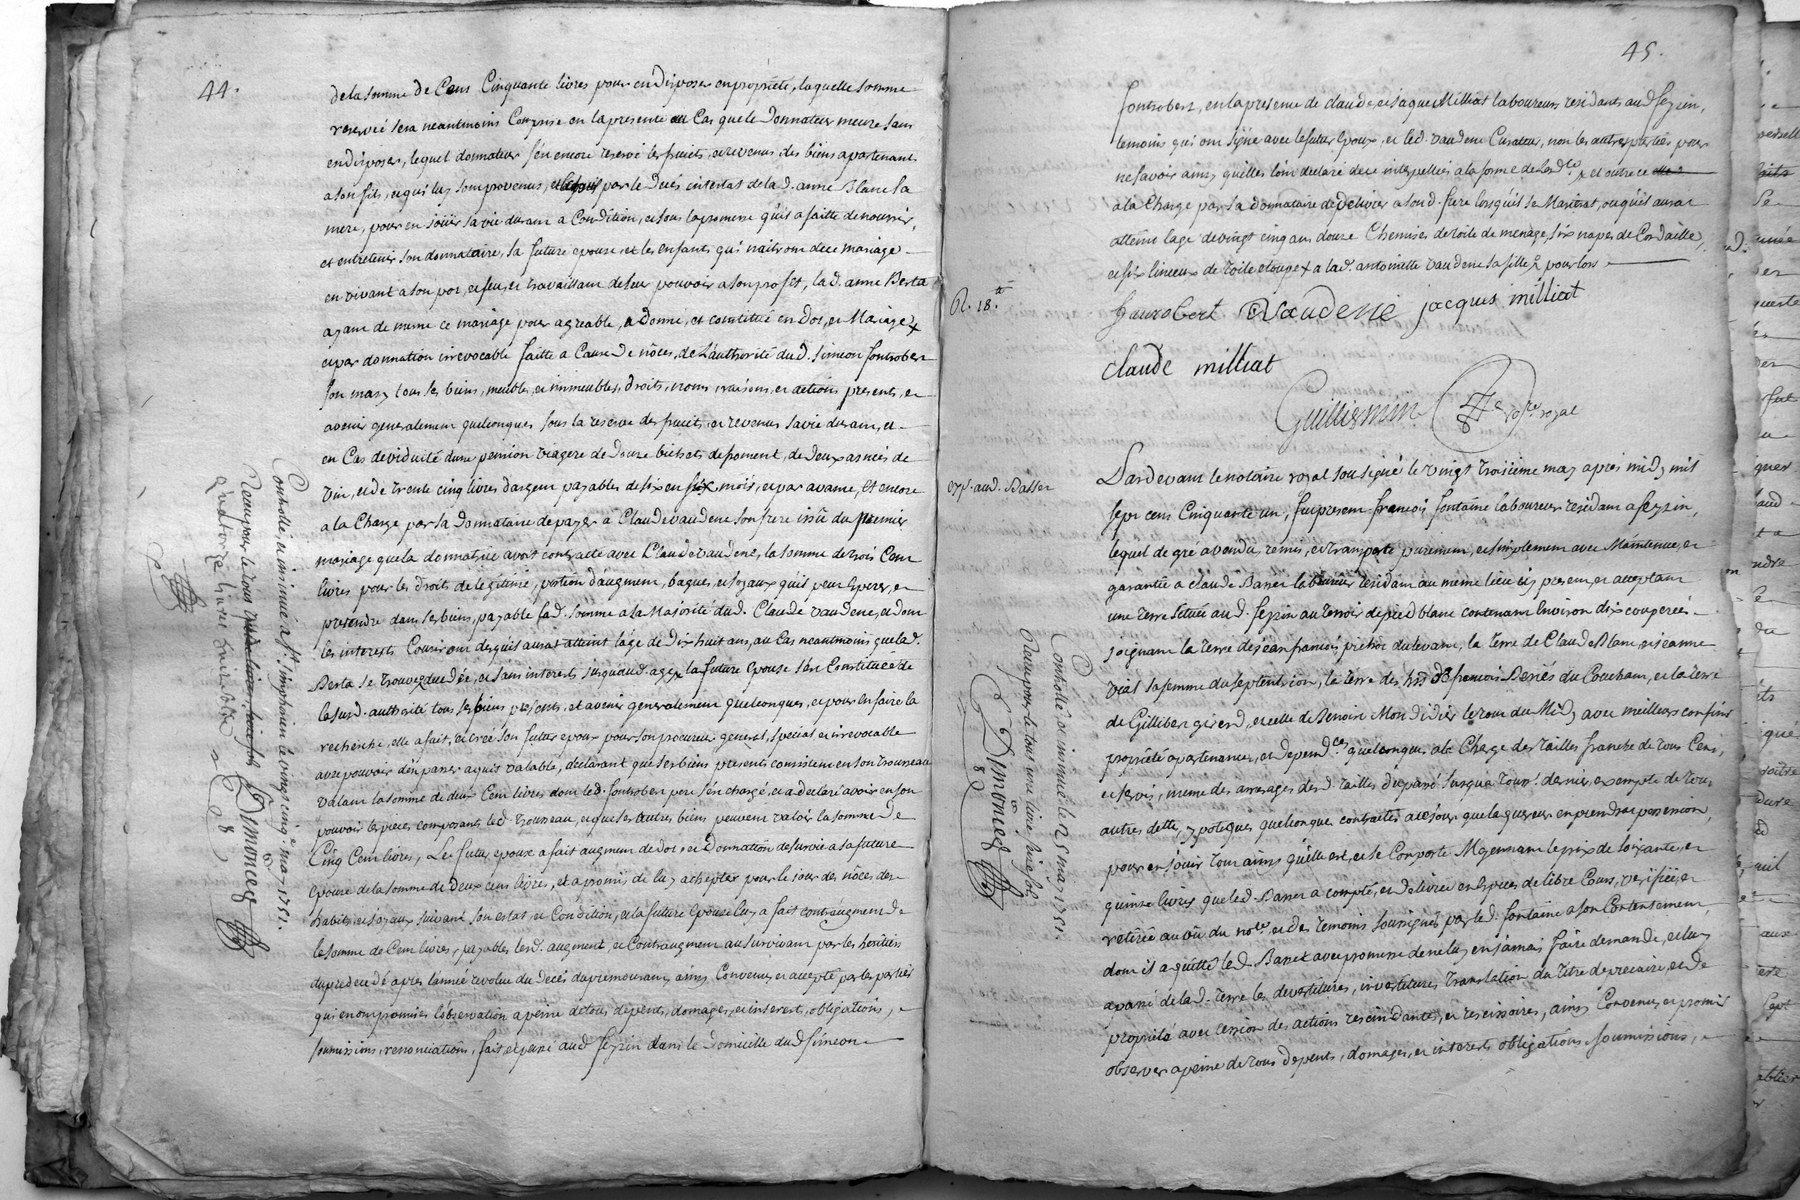 44.
de la somme de Cens Cinquante livres pour en disposer en propriété, laquelle somme
reservée sera neantmoins Comprise en la presente au Cas que le Donnateur meure sans
en disposer, lequel donnateur s'en encore reservé les fruits, et revenus des biens apartenant
a son fils, et qui luy sont provenus, par le Decès intestat de lad. anne Blanc sa
mere, pour en jouir sa vie durant a Condition, et sous la promesse qu'il a faitte de nourrir,
et entretenir son donnataire, sa future epouse, et les enfants qui naitront de ce mariage
en vivant a son pot, et feu, et travaillant de leur pouvoir a son profit, lad. anne Berta
ayant de meme ce mariage pour agreable, a donné, et constitué en Dot, et Mariage
et par donnation irrevocable faitte a Cause de nôces, de L'authorité dud. Simeon fontrobert
son mary tous ses biens, meubles, et immeubles, droits, noms, raisons, et actions presents, et
avenir generalement quelconques sous la reserve des fruits, et revenus sa vie durant, et
en Cas de viduité d'une pension viagere de Douze bichets de froment, de Deux asnées de
vin, et de trente cinq livres d'argent payables de six en six mois, et par avance, Et encore
a la Charge par sa Donnataire de payer a Claude vaudene son frere issû du premier
mariage que la donnatrice avoit contracté avec Claude vaudene, la somme de trois Cent
livres pour le droit de legitime, portion d'augment, bagues, et joyaux qu'il peut esperer, et
pretendre dans ses biens, payable lad. somme a la Majorité dud. Claude vaudene, et dont
les interests Couriront dès qu'il aurat atteint l'âge de Dix huit ans, au Cas neantmoins que lad.
Berta se trouve decedée, et sans interets jusqu'aud. age la future Epouse s'en Constituée de
lasusd. authorité tous ses biens presents, et avenir generalement quelconques, et pour en faire la
recherche, elle a fait, et creé son futur epoux pour son procureur general, special, et irrevocable
avec pouvoir d'en passer aquit valable, declarant que ses biens presents consistent en son trousseau
valant la somme de deux Cent livres dont led. fontrobert pere s'en chargé, et a declaré avoir en son
pouvoir les pieces composants led. trousseau, et que ses autres biens peuvent valoir la somme de
Cinq Cent livres, Le futur epoux a fait augment de dot, et Donnation de survie a sa future
epouse de la somme de deux cens livres, et a promis de luy achepter pour le jour des nôces des
habits, et joyaux suivant son estat, et Condition, et la future Epouse luy a fait contraugment de
la somme de Cent livres, payables lesd. augment, et Contraugment au survivant par les heritiers
du predecedé apres l'année revolue du Decès du premourant, ainsy Convenu, et accepté par les parties
qui en ont promises l'observation a peine de tous depents, domages, et interests, obligations, et
soumissions, renonciations, fait et passé aud. feyzin dans le Domicille dud. Simeon
Controllé, et insinué a St. simphorien le vingt cinqe. may 1751.
Reçu pour le tout
quatorze livres huit sols
Dimonceg
45.
fontrobert, en la presence de claude, et jaque Milliat laboureurs residants aud. feyzin,
temoins qui ont signé avec le futur Epoux, et led. vaudene Curateur, non les autres parties pour
ne savoir ainsy qu'elles l'ont declaré de ce interpellées a la forme de Lordce. et outre ce
a la Charge par sa donnataire de Delivrer a sond. frere lors qu'il se Marirat, ou qu'il aurat
atteint l'age de vingt cinq ans douze Chemises de toile de menage, six napes de Cordaille,
et six linceux de toile etoupe a lad. antoinette vaudene sa fille pour lors
R. 18.tt
fontrobert Dvaudene jacques milliat
claude milliat
Guilliermin Nore. royal
exp. aud. Basset
Pardevant le notaire royal soussigné le vingt troisieme may apres midy mil
sept cens Cinquante un, fut present françois fontaine laboureur residant a feyzin,
lequel de gré a vendu, remis, et transporté purement, et simplement avec Maintenue, et
garantie a claude Basset laboureur residant au meme lieu icy present, et acceptant
une terre située aud. feyzin au terroir de pied blanc contenant Environ dix couperées
joignant la terre de jean françois prethot du levant, la terre de Claude Blanc, et jeanne
vial sa femme du septentrion, la terre des hrs de françois Benés du Couchant, et la terre
de Gillibert girerd, et celle de Benoit Mondidier le tour du Midy avec meilleurs confins
propriété apartenances, et dependces. quelconques, a la Charge des tailles franche de tous Cens,
et servis, meme des arrerages desd. tailles du passé jusqu'a jour. dernier, exempte de tous
autres dette, ypoteques quelconque contractés au jour que l'aquereur en prendra possession,
pour en jouir tout ainsy qu'elle est, et se Comporte Moyennant le prix de soixante, et
quinze livres que led. Basset a compté, et delivrée en Especes de libre Cours, verifiée, et
retirée au vû du nore., et des temoins soussignés par led. fontaine a son Contentement,
dont il a quitté led. Basset avec promesse de ne luy en jamais faire demande, et luy
a passé de lad. terre les devestitures, investitures, translation du titre de precaire, et de
proprieté avec cession des actions rescindantes, et rescissoires, ainsy Convenu, et promis
observer a peine de tous depents, domages, et interets obligations soumissions, et
Controllé, et insinué le 25 may 1751.
Reçu pour le tout une livre huit sol
Dimonceg